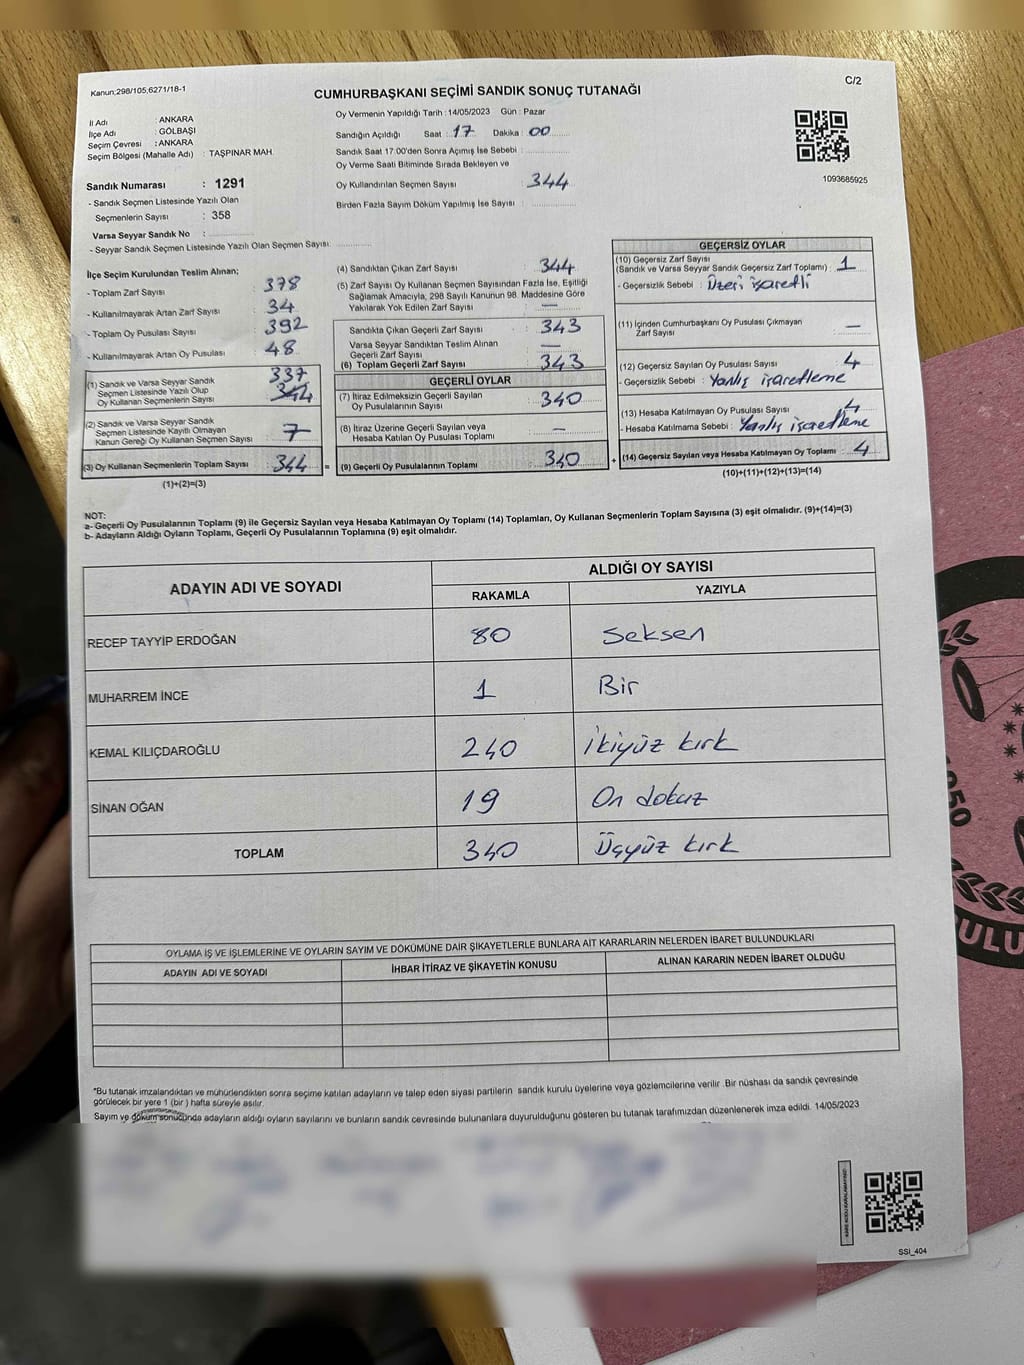 Kanun;298/105,6271/18-1
C/2
CUMHURBAŞKANI SEÇİMİ SANDIK SONUÇ TUTANAĞI
İl Adı : ANKARA
İlçe Adı : GÖLBAŞI
Seçim Çevresi : ANKARA
Seçim Bölgesi (Mahalle Adı) : TAŞPINAR MAH.
Sandık Numarası : 1291
- Sandık Seçmen Listesinde Yazılı Olan
Seçmenlerin Sayısı : 358
Varsa Seyyar Sandık No :
- Seyyar Sandık Seçmen Listesinde Yazılı Olan Seçmen Sayısı:
Oy Vermenin Yapıldığı Tarih : 14/05/2023 Gün : Pazar
Sandığın Açıldığı Saat : 17 Dakika : 00
Sandık Saat 17:00'den Sonra Açımış İse Sebebi :
Oy Verme Saati Bitiminde Sırada Bekleyen ve
Oy Kullandırılan Seçmen Sayısı : 344
Birden Fazla Sayım Döküm Yapılmış İse Sayısı :
1093685925
İlçe Seçim Kurulundan Teslim Alınan;
- Toplam Zarf Sayısı : 378
- Kullanılmayarak Artan Zarf Sayısı : 34
- Toplam Oy Pusulası Sayısı : 392
- Kullanılmayarak Artan Oy Pusulası : 48
(1) Sandık ve Varsa Seyyar Sandık
Seçmen Listesinde Yazılı Olup
Oy Kullanan Seçmenlerin Sayısı : 337
344
(2) Sandık ve Varsa Seyyar Sandık
Seçmen Listesinde Kayıtlı Olmayan
Kanun Gereği Oy Kullanan Seçmen Sayısı : 7
(3) Oy Kullanan Seçmenlerin Toplam Sayısı : 344 =
(1)+(2)=(3)
(4) Sandıktan Çıkan Zarf Sayısı : 344
(5) Zarf Sayısı Oy Kullanan Seçmen Sayısından Fazla İse, Eşitliği
Sağlamak Amacıyla, 298 Sayılı Kanunun 98. Maddesine Göre
Yakılarak Yok Edilen Zarf Sayısı : —
Sandıkta Çıkan Geçerli Zarf Sayısı : 343
Varsa Seyyar Sandıktan Teslim Alınan
Geçerli Zarf Sayısı : —
(6) Toplam Geçerli Zarf Sayısı : 343
GEÇERLİ OYLAR
(7) İtiraz Edilmeksizin Geçerli Sayılan
Oy Pusulalarının Sayısı : 340
(8) İtiraz Üzerine Geçerli Sayılan veya
Hesaba Katılan Oy Pusulası Toplamı : —
(9) Geçerli Oy Pusulalarının Toplamı : 340 +
GEÇERSİZ OYLAR
(10) Geçersiz Zarf Sayısı
(Sandık ve Varsa Seyyar Sandık Geçersiz Zarf Toplamı) : 1
- Geçersizlik Sebebi : Üzeri işaretli
(11) İçinden Cumhurbaşkanı Oy Pusulası Çıkmayan
Zarf Sayısı : —
(12) Geçersiz Sayılan Oy Pusulası Sayısı : 4
- Geçersizlik Sebebi : Yanlış işaretleme
(13) Hesaba Katılmayan Oy Pusulası Sayısı : 4
- Hesaba Katılmama Sebebi : Yanlış işaretleme
(14) Geçersiz Sayılan veya Hesaba Katılmayan Oy Toplamı : 4
(10)+(11)+(12)+(13)=(14)
NOT:
a- Geçerli Oy Pusulalarının Toplamı (9) ile Geçersiz Sayılan veya Hesaba Katılmayan Oy Toplamı (14) Toplamları, Oy Kullanan Seçmenlerin Toplam Sayısına (3) eşit olmalıdır. (9)+(14)=(3)
b- Adayların Aldığı Oyların Toplamı, Geçerli Oy Pusulalarının Toplamına (9) eşit olmalıdır.
ADAYIN ADI VE SOYADI ALDIĞI OY SAYISI
RAKAMLA YAZIYLA
RECEP TAYYİP ERDOĞAN 80 Seksen
MUHARREM İNCE 1 Bir
KEMAL KILIÇDAROĞLU 240 İkiyüz kırk
SİNAN OĞAN 19 On dokuz
TOPLAM 340 Üçyüz kırk
OYLAMA İŞ VE İŞLEMLERİNE VE OYLARIN SAYIM VE DÖKÜMÜNE DAİR ŞİKAYETLERLE BUNLARA AİT KARARLARIN NELERDEN İBARET BULUNDUKLARI
ADAYIN ADI VE SOYADI İHBAR İTİRAZ VE ŞİKAYETİN KONUSU ALINAN KARARIN NEDEN İBARET OLDUĞU
*Bu tutanak imzalandıktan ve mühürlendikten sonra seçime katılan adayların ve talep eden siyasi partilerin sandık kurulu üyelerine veya gözlemcilerine verilir .Bir nüshası da sandık çevresinde
görülecek bir yere 1 (bir ) hafta süreyle asılır.
Sayım ve döküm sonucunda adayların aldığı oyların sayılarını ve bunların sandık çevresinde bulunanlara duyurulduğunu gösteren bu tutanak tarafımızdan düzenlenerek imza edildi. 14/05/2023
SSİ_404
1950
ULU